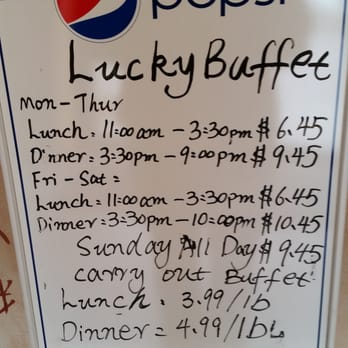 pepsi
Lucky Buffet
Mon-Thur
Lunch: 11:00am - 3:30pm $6.45
Dinner: 3:30pm - 9:00pm $9.45
Fri-Sat:
Lunch: 11:00am - 3:30pm $6.45
Dinner: 3:30pm - 10:00pm $10.45
Sunday All Day $9.45
carry out Buffet:
Lunch: 3.99/lb
Dinner: 4.99/lb